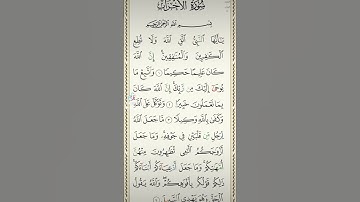 سُورَةُ الْأَحْزَابِ
بِسْمِ اللَّهِ الرَّحْمَٰنِ الرَّحِيمِ
يَٰٓأَيُّهَا ٱلنَّبِىُّ ٱتَّقِ ٱللَّهَ وَلَا تُطِعِ
ٱلْكَٰفِرِينَ وَٱلْمُنَٰفِقِينَ إِنَّ ٱللَّهَ
كَانَ عَلِيمًا حَكِيمًا ١ وَٱتَّبِعْ مَا
يُوحَىٰٓ إِلَيْكَ مِن رَّبِّكَ إِنَّ ٱللَّهَ كَانَ
بِمَا تَعْمَلُونَ خَبِيرًا ٢ وَتَوَكَّلْ عَلَى ٱللَّهِ
وَكَفَىٰ بِٱللَّهِ وَكِيلًا ٣ مَّا جَعَلَ ٱللَّهُ
لِرَجُلٍ مِّن قَلْبَيْنِ فِى جَوْفِهِۦ وَمَا جَعَلَ
أَزْوَٰجَكُمُ ٱلَّٰٓـِٔى تُظَٰهِرُونَ مِنْهُنَّ
أُمَّهَٰتِكُمْ وَمَا جَعَلَ أَدْعِيَآءَكُمْ أَبْنَآءَكُمْ
ذَٰلِكُمْ قَوْلُكُم بِأَفْوَٰهِكُمْ وَٱللَّهُ يَقُولُ
ٱلْحَقَّ وَهُوَ يَهْدِى ٱلسَّبِيلَ ٤